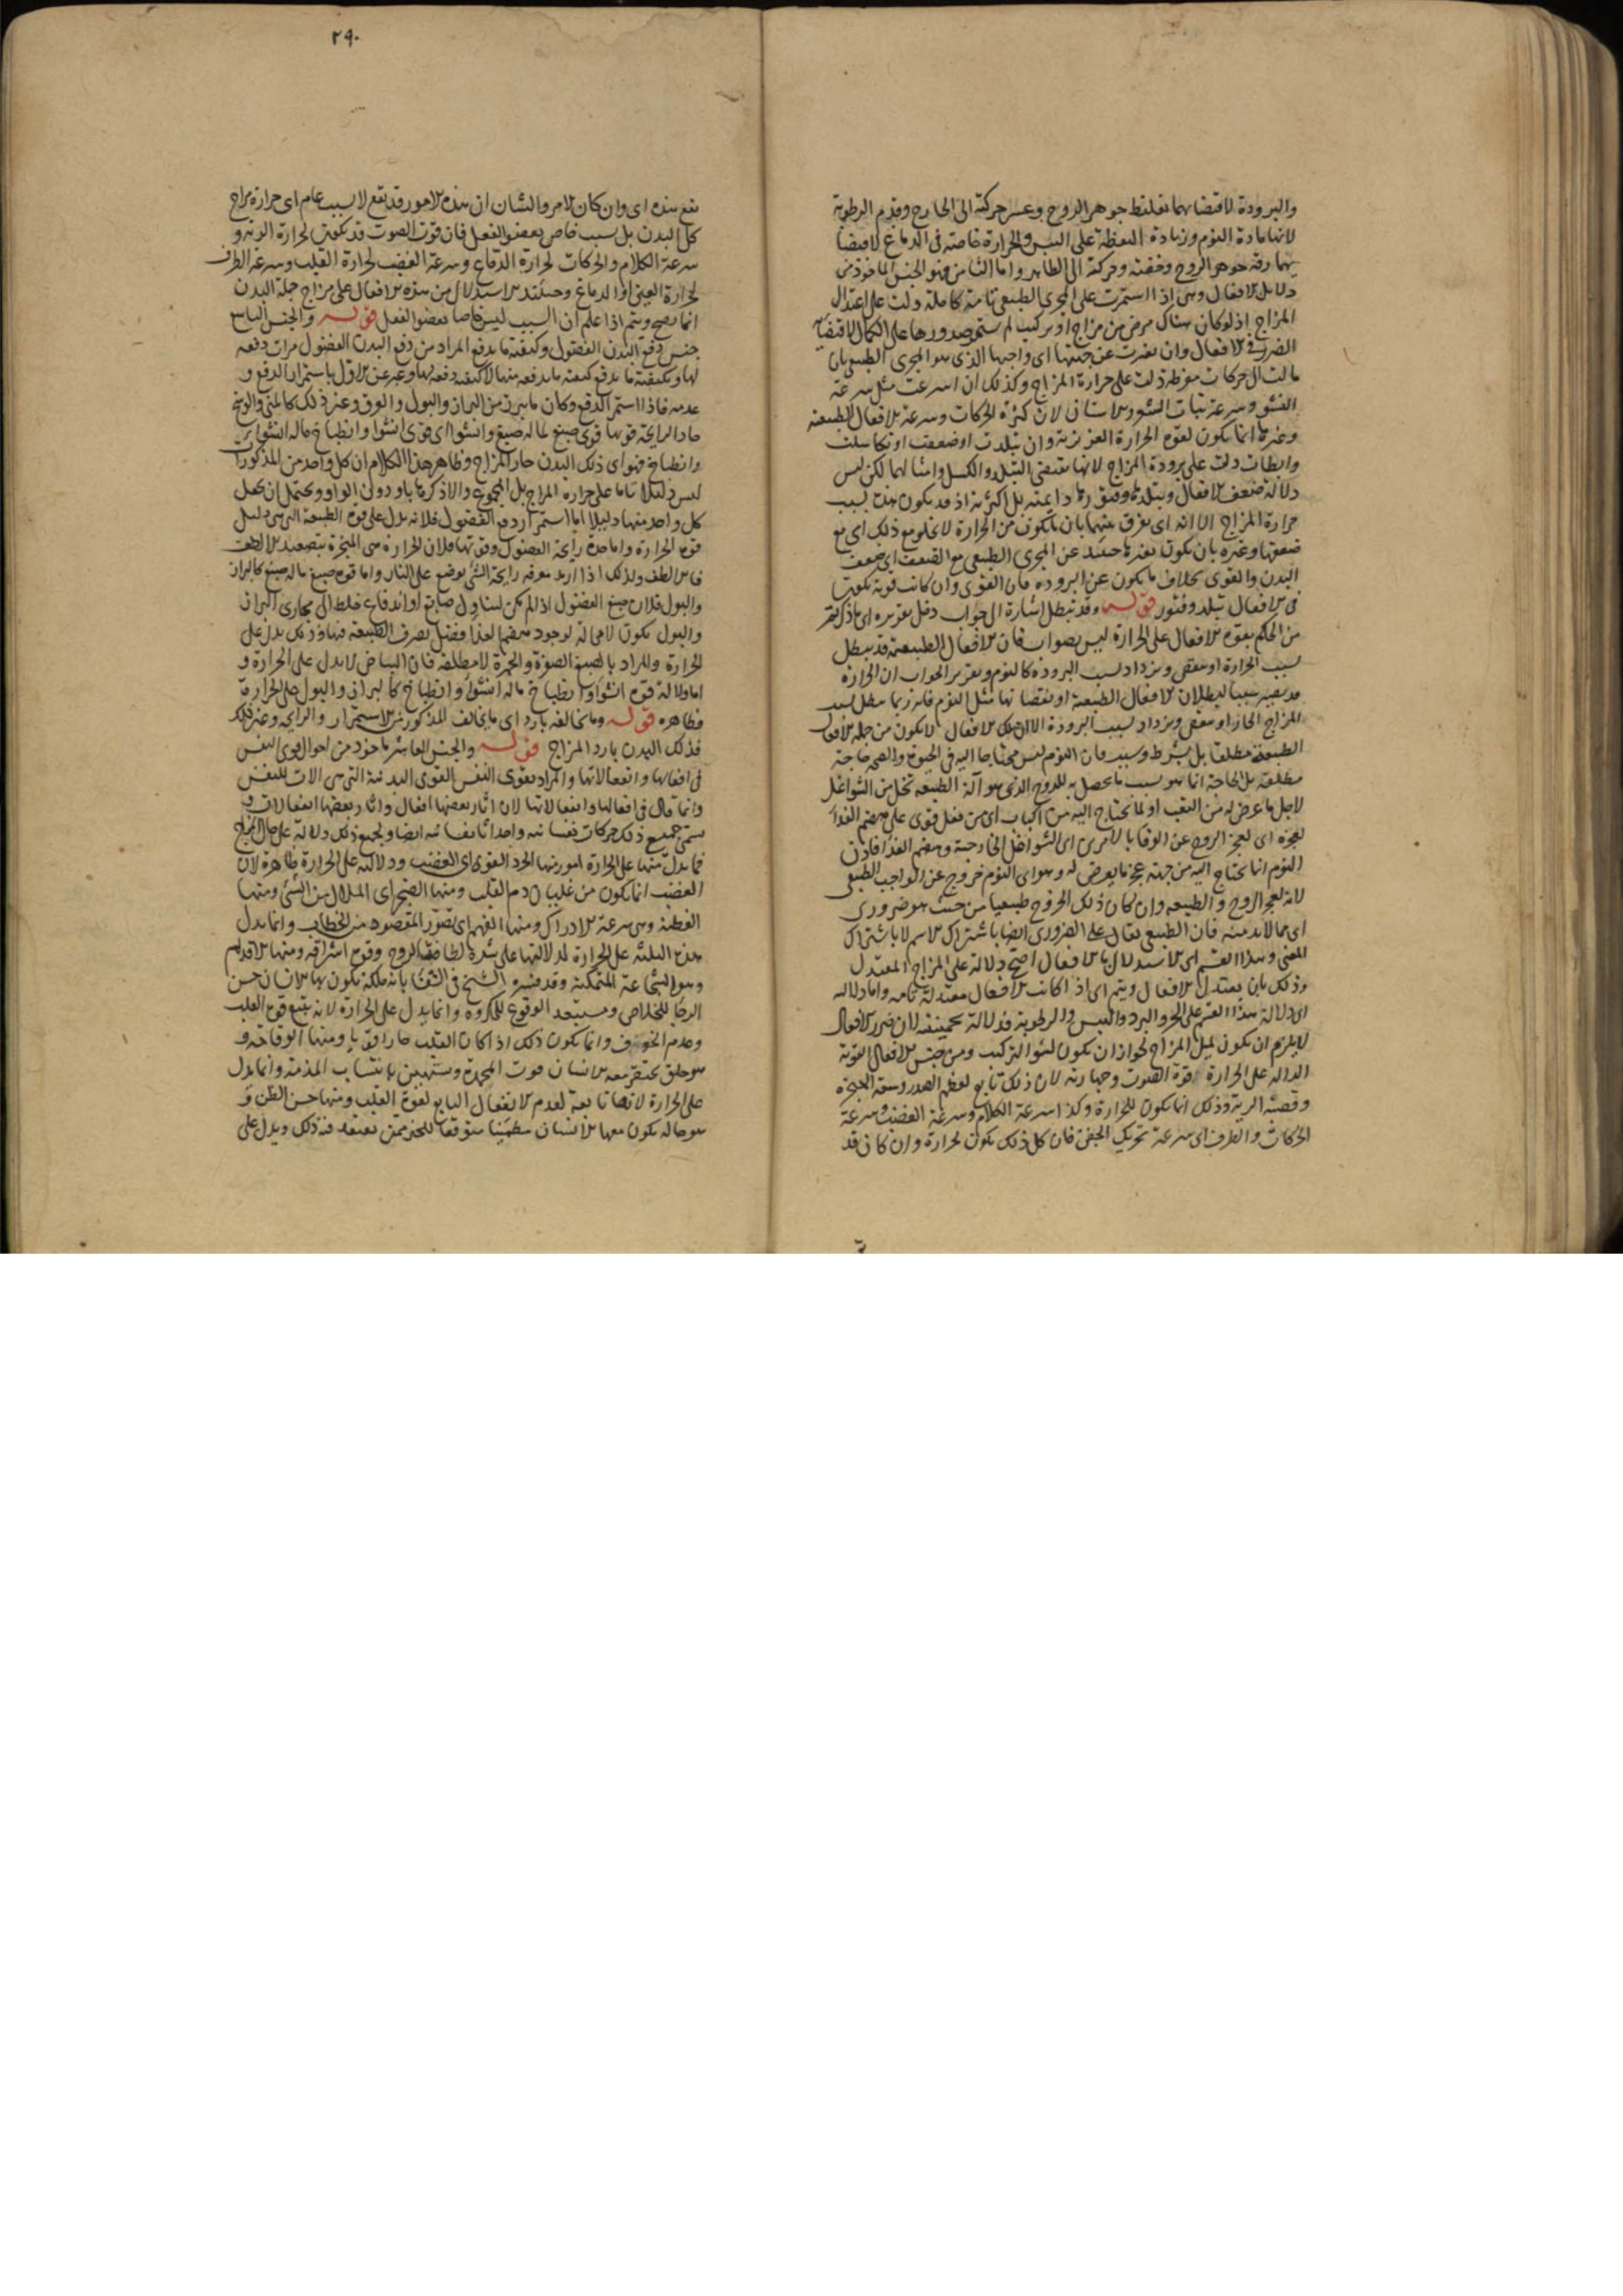 والبرودة لاقتضائهما تغليظ جوهر الروح وعسر حركته الى الخارج وقدم الرطوبة
لانها مادة النوم وزيادة اليقظة على اليبس والحرارة خاصة فى الدماغ لاقتضا
ئهما رقة جوهر الروح وخفته وحركته الى الظاهر واما الثامن فهو الجنس الماخوذ من
دلايل الافعال وهى اذا استمرت على المجرى الطبيعى تامة كاملة دلت على اعتدال
المزاج اذ لو كان هناك مرض من مزاج او تركيب لم يستمر صدورها على الكمال لاقتضائه
الضرر فى الافعال وان تغيرت عن جهتها اى واجبها الذى هو المجرى الطبيعى بان
مالت الى حركات مفرطة دلت على حرارة المزاج وكذلك ان اسرعت مثل سرعة
النشو وسرعة نبات الشعر والاسنان لان كثرة الحركات وسرعة الافعال الطبيعية
وغيرها انما يكون لقوة الحرارة الغريزية وان تبلدت او ضعفت او تكاسلت
وابطات دلت على برودة المزاج لانها تقتضى التبلد والكسل وامثالهما لكن ليس
دلالة ضعف الافعال وتبلدها وفتورها دايمة بل اكثرية اذ قد يكون هذه بسبب
حرارة المزاج الا انه اى يفرق بينهما بان ما يكون من الحرارة لا يخلو مع ذلك اى مع
ضعفها وغيره بان يكون تغيرها حينئذ عن المجرى الطبيعى مع الضعف اى ضعف
البدن والقوى بخلاف ما يكون عن البرودة فان القوى وان كانت قوية يكون
فى الافعال تبلد وفتور قوله وقد تبطل اشارة الى جواب دخل تقريره اى ما ذكرتم
من الحكم بقوة الافعال على الحرارة ليس بصواب فان الافعال الطبيعية قد تبطل
بسبب الحرارة او تنقص وتزداد بسبب البرودة كالنوم وتقرير الجواب ان الحرارة
قد يصير سببا لبطلان الافعال الطبيعية او نقصانها مثل النوم فانه ربما بطل بسبب
المزاج الحار او نقص ويزداد بسبب البرودة الا ان تلك الافعال لا يكون من جملة الافعال
الطبيعية مطلقا بل بشرط وسبب فان النوم ليس محتاجا اليه فى الحيوة والصحة حاجة
مطلقة بل الحاجة انما هو بسبب ما يحصل به للروح الذى هو آلة الطبيعة تخل من الشواغل
لاجل ما عرض له من التعب او لما يحتاج اليه من اكباب اى من فعل قوى على هضم الغذا
لعجزه اى لعجز الروح عن الوفا بالامرين اى الشواغل الخارجة وهضم الغذا فاذن
النوم انما يحتاج اليه من جهة عجز ما يعرض له وهو اى النوم خروج عن الواجب الطبيعى
لانه لعجز الروح والطبيعة وان كان ذلك الخروج طبيعيا من حيث هو ضرورى
اى مما لابد منه فان الطبيعى يقال على الضرورى ايضا باشتراك الاسم لا باشتراك
المعنى وهذا القسم اى الاستدلال بالافعال اصح دلالة على المزاج المعتدل
وذلك بان يعتدل الافعال ويتم اى اذا كانت الافعال معتدلة تامة واما دلالته
اى دلالة هذا القسم على الحر والبرد واليبس والرطوبة فدلالة تخمينية لان ضرر الافعال
لا يلزم ان يكون لميل المزاج لجواز ان يكون لسوء التركيب ومن جنس الافعال القوية
الدالة على الحرارة قوة الصوت وجهارته لان ذلك تابع لعظم الصدر وسعة الحنجرة
وقصبة الرية وذلك انما يكون للحرارة وكذا سرعة الكلام وسرعة الغضب وسرعة
الحركات والطرف اى سرعة تحريك الجفن فان كل ذلك يكون لحرارة وان كان قد
٢٩٠
تقع هذه اى وان كان الامر والشان ان هذه الامور قد تقع لا بسبب عام اى حرارة مزاج
كل البدن بل بسبب خاص بعضو الفعل فان قوة الصوت قد يكون لحرارة الرية و
سرعة الكلام والحركات لحرارة الدماغ وسرعة الغضب لحرارة القلب وسرعة الطرف
لحرارة العين او الدماغ وحينئذ الاستدلال من هذه الافعال على مزاج جملة البدن
انما يصح ويتم اذا علم ان السبب ليس خاصا بعضو الفعل قوله والجنس التاسع
جنس دفع البدن الفضول وكيفية ما يدفع المراد من دفع البدن الفضول مرات دفعه
لها وبكيفية ما يدفع كيفية ما يدفعه منها لا كيفية دفعه لها وعبر عن الاول باستمرار الدفع و
عدمه فاذا استمر الدفع وكان ما يبرز من البراز والبول والعرق وغير ذلك كالمنى والوسخ
حاد الرايحة قويها قوى صبغ لما له صبغ وانشوا اى قوى انشوا وانطباخ ما له انشوا
وانطباخ فهو اى ذلك البدن حار المزاج وظاهر هذا الكلام ان كل واحد من المذكورات
ليس دليلا تاما على حرارة المزاج بل المجموع والا ذكرها باو دون الواو ويحتمل ان يجعل
كل واحد منها دليلا اما استمرار دفع الفضول فلانه يدل على قوة الطبيعة التى هى دليل
قوة الحرارة واما حدة رايحة الفضول وقوتها فلان الحرارة هى المبخرة بتصعيد الالطف
فالالطف ولذلك اذا اريد معرفة رايحة الشئ يوضع على النار واما قوة صبغ ما له صبغ كالبراز
والبول فلان صبغ الفضول اذا لم يكن لتناول صابغ او اندفاع خلط الى مجارى البراز
والبول يكون لا محالة لوجود هضمها لغذا وفضل تصرف الطبيعة فيها وذلك يدل على
الحرارة والمراد بالصبغ الصفرة والحمرة لا مطلقه فان البياض لا يدل على الحرارة و
اما دلالة قوة انشوا وانطباخ ما له انشوا وانطباخ كالبراز والبول على الحرارة
فظاهره قوله وما يخالفه بارد اى ما يخالف المذكور من الاستمرار والرايحة وغير ذلك
فذلك البدن بارد المزاج قوله والجنس العاشر ماخوذ من احوال قوى النفس
فى افعالها وانفعالاتها والمراد بقوى النفس القوى البدنية التى هى الات للنفس
وانما قال فى افعالها وانفعالاتها لان اثار بعضها افعال واثار بعضها انفعالات و
يسمى جميع ذلك حركات نفسانية واحداثا نفسانية ايضا ولجميع ذلك دلالة على حال المزاج
فما يدل منها على الحرارة امور منها الحرد القوى اى الغضب ودلالته على الحرارة ظاهرة لان
الغضب انما يكون من غليان دم القلب ومنها الضجر اى الملال من الشئ ومنها
الفطنة وهى سرعة الادراك ومنها الفهم اى تصور المقصود من الخطاب وانما يدل
هذه الثلثة على الحرارة لدلالتها على شدة لطافة الروح وقوة اشراقه ومنها الاقدام
وهو الشجاعة المتمكنة وقد فسره الشيخ فى الشفا بانه ملكة يكون بها الانسان حسن
الرجا للخلاص ومستبعد الوقوع للمكروه وانما يدل على الحرارة لانه يتبع قوة القلب
وعدم الخوف وانما يكون ذلك اذا كان القلب حارا قويا ومنها الوقاحة و
هو خلق يحتقر معه الانسان فوت المحمدة ويستهين بانتساب المذمة وانما يدل
على الحرارة لانها تابعة لعدم الانفعال التابع لقوة القلب ومنها حسن الظن و
هو حالة يكون معها الانسان مطمئنا متوقعا للخير ممن يعتقد فيه ذلك ويدل على